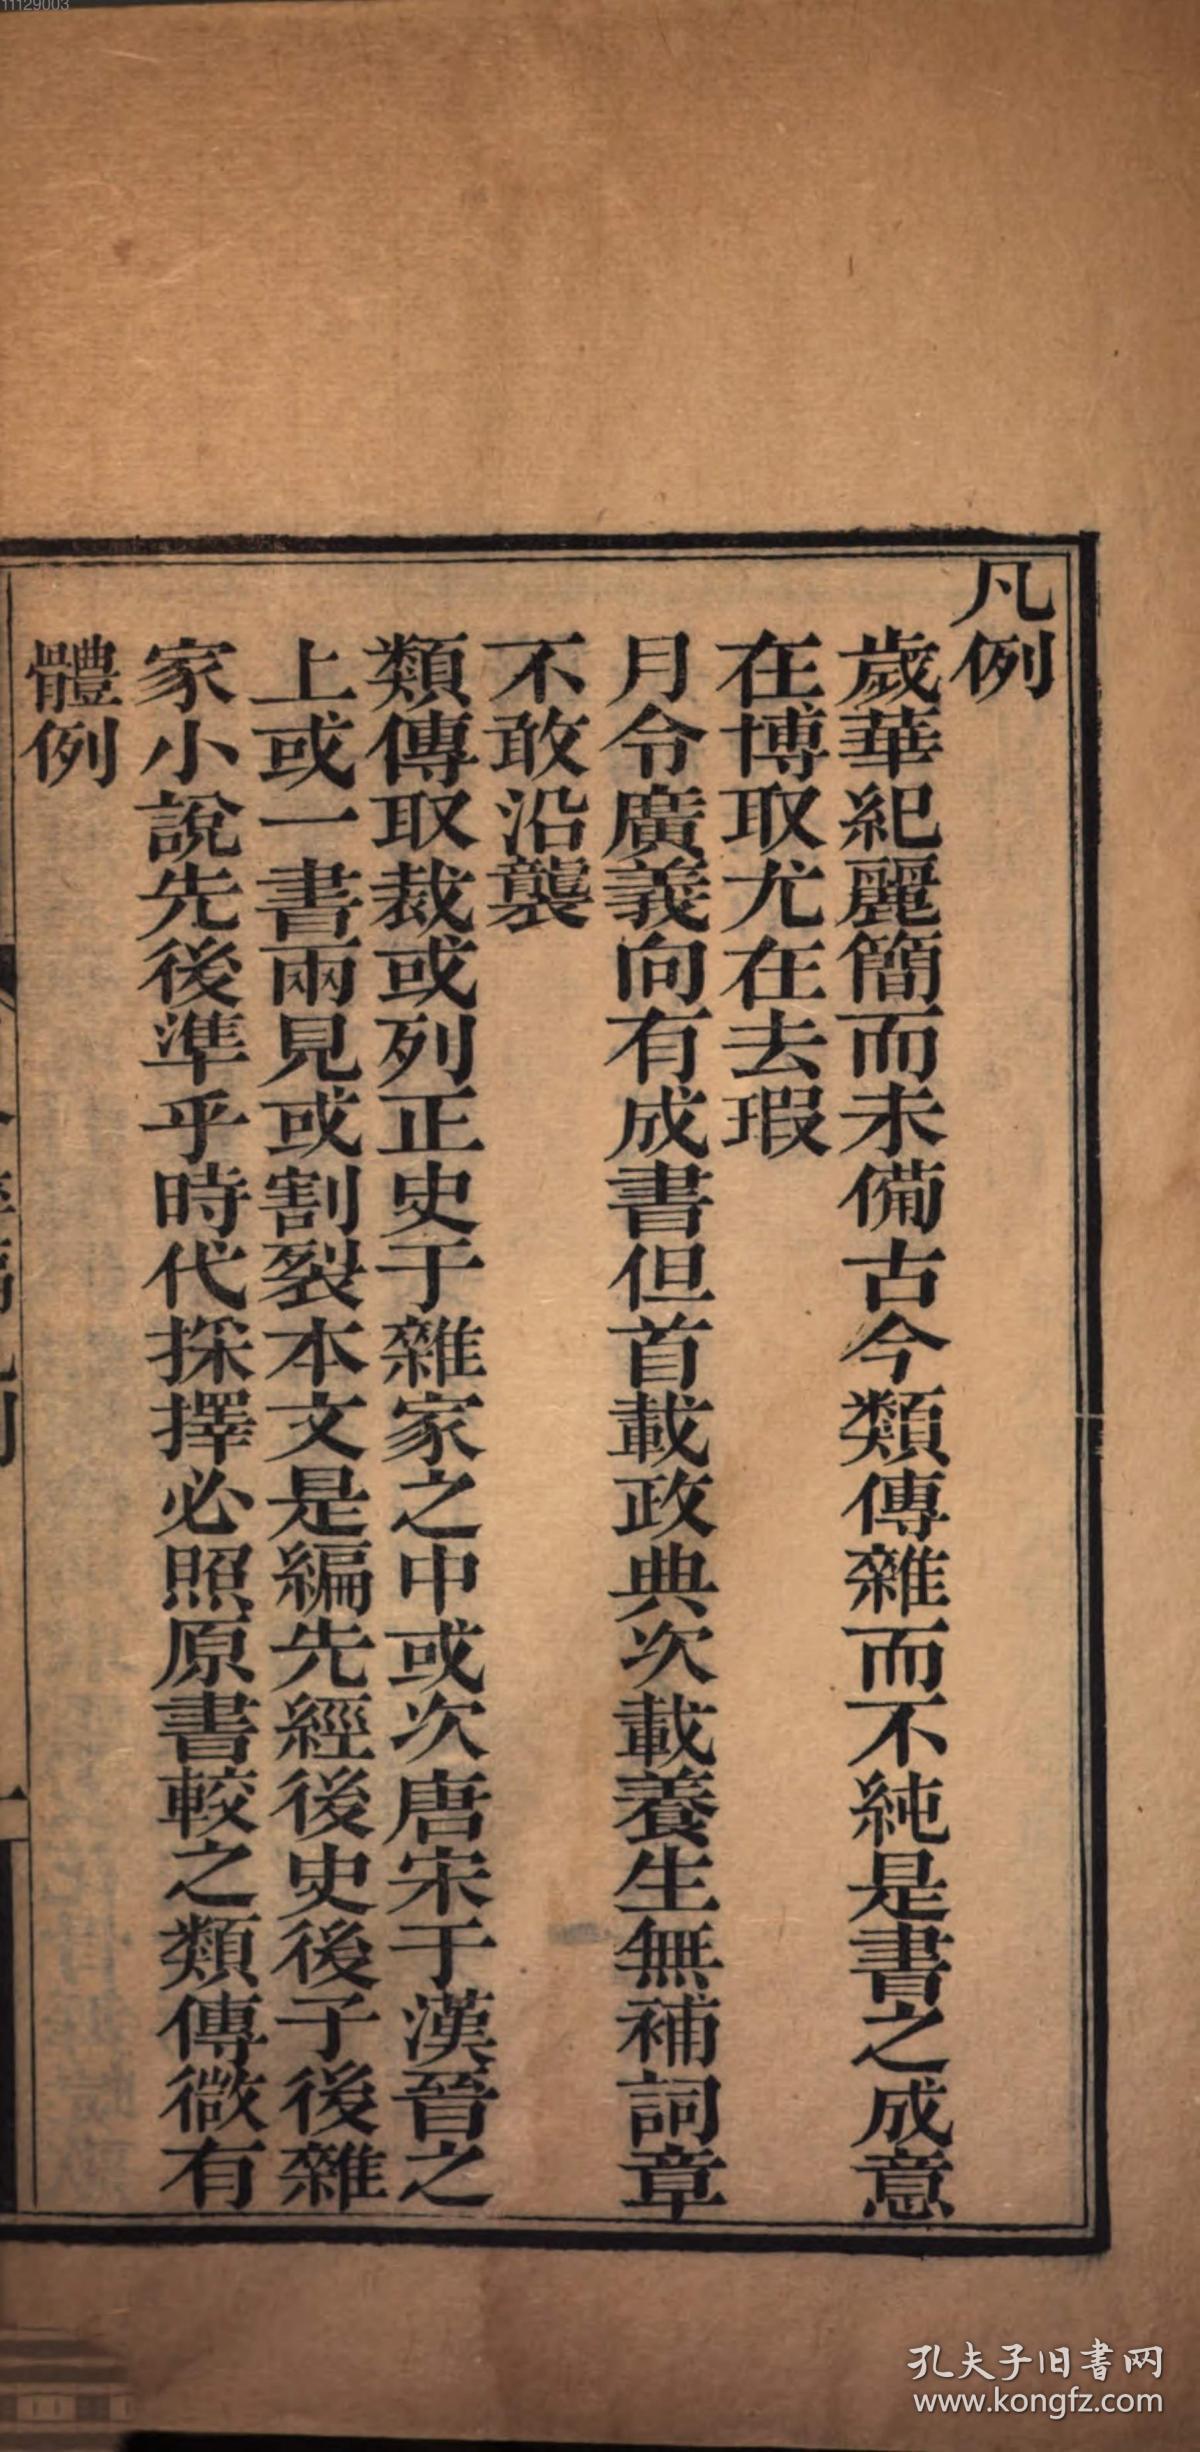 11129003
凡例
歲華紀麗簡而未備古今類傳雜而不純是書之成意
在博取尤在去瑕
月令廣義向有成書但首載政典次載養生無補詞章
不敢沿襲
類傳取裁或列正史于雜家之中或次唐宋于漢晉之
上或一書兩見或割裂本文是編先經後史後子後雜
家小說先後準乎時代採擇必照原書較之類傳微有
體例
孔夫子旧书网
www.kongfz.com